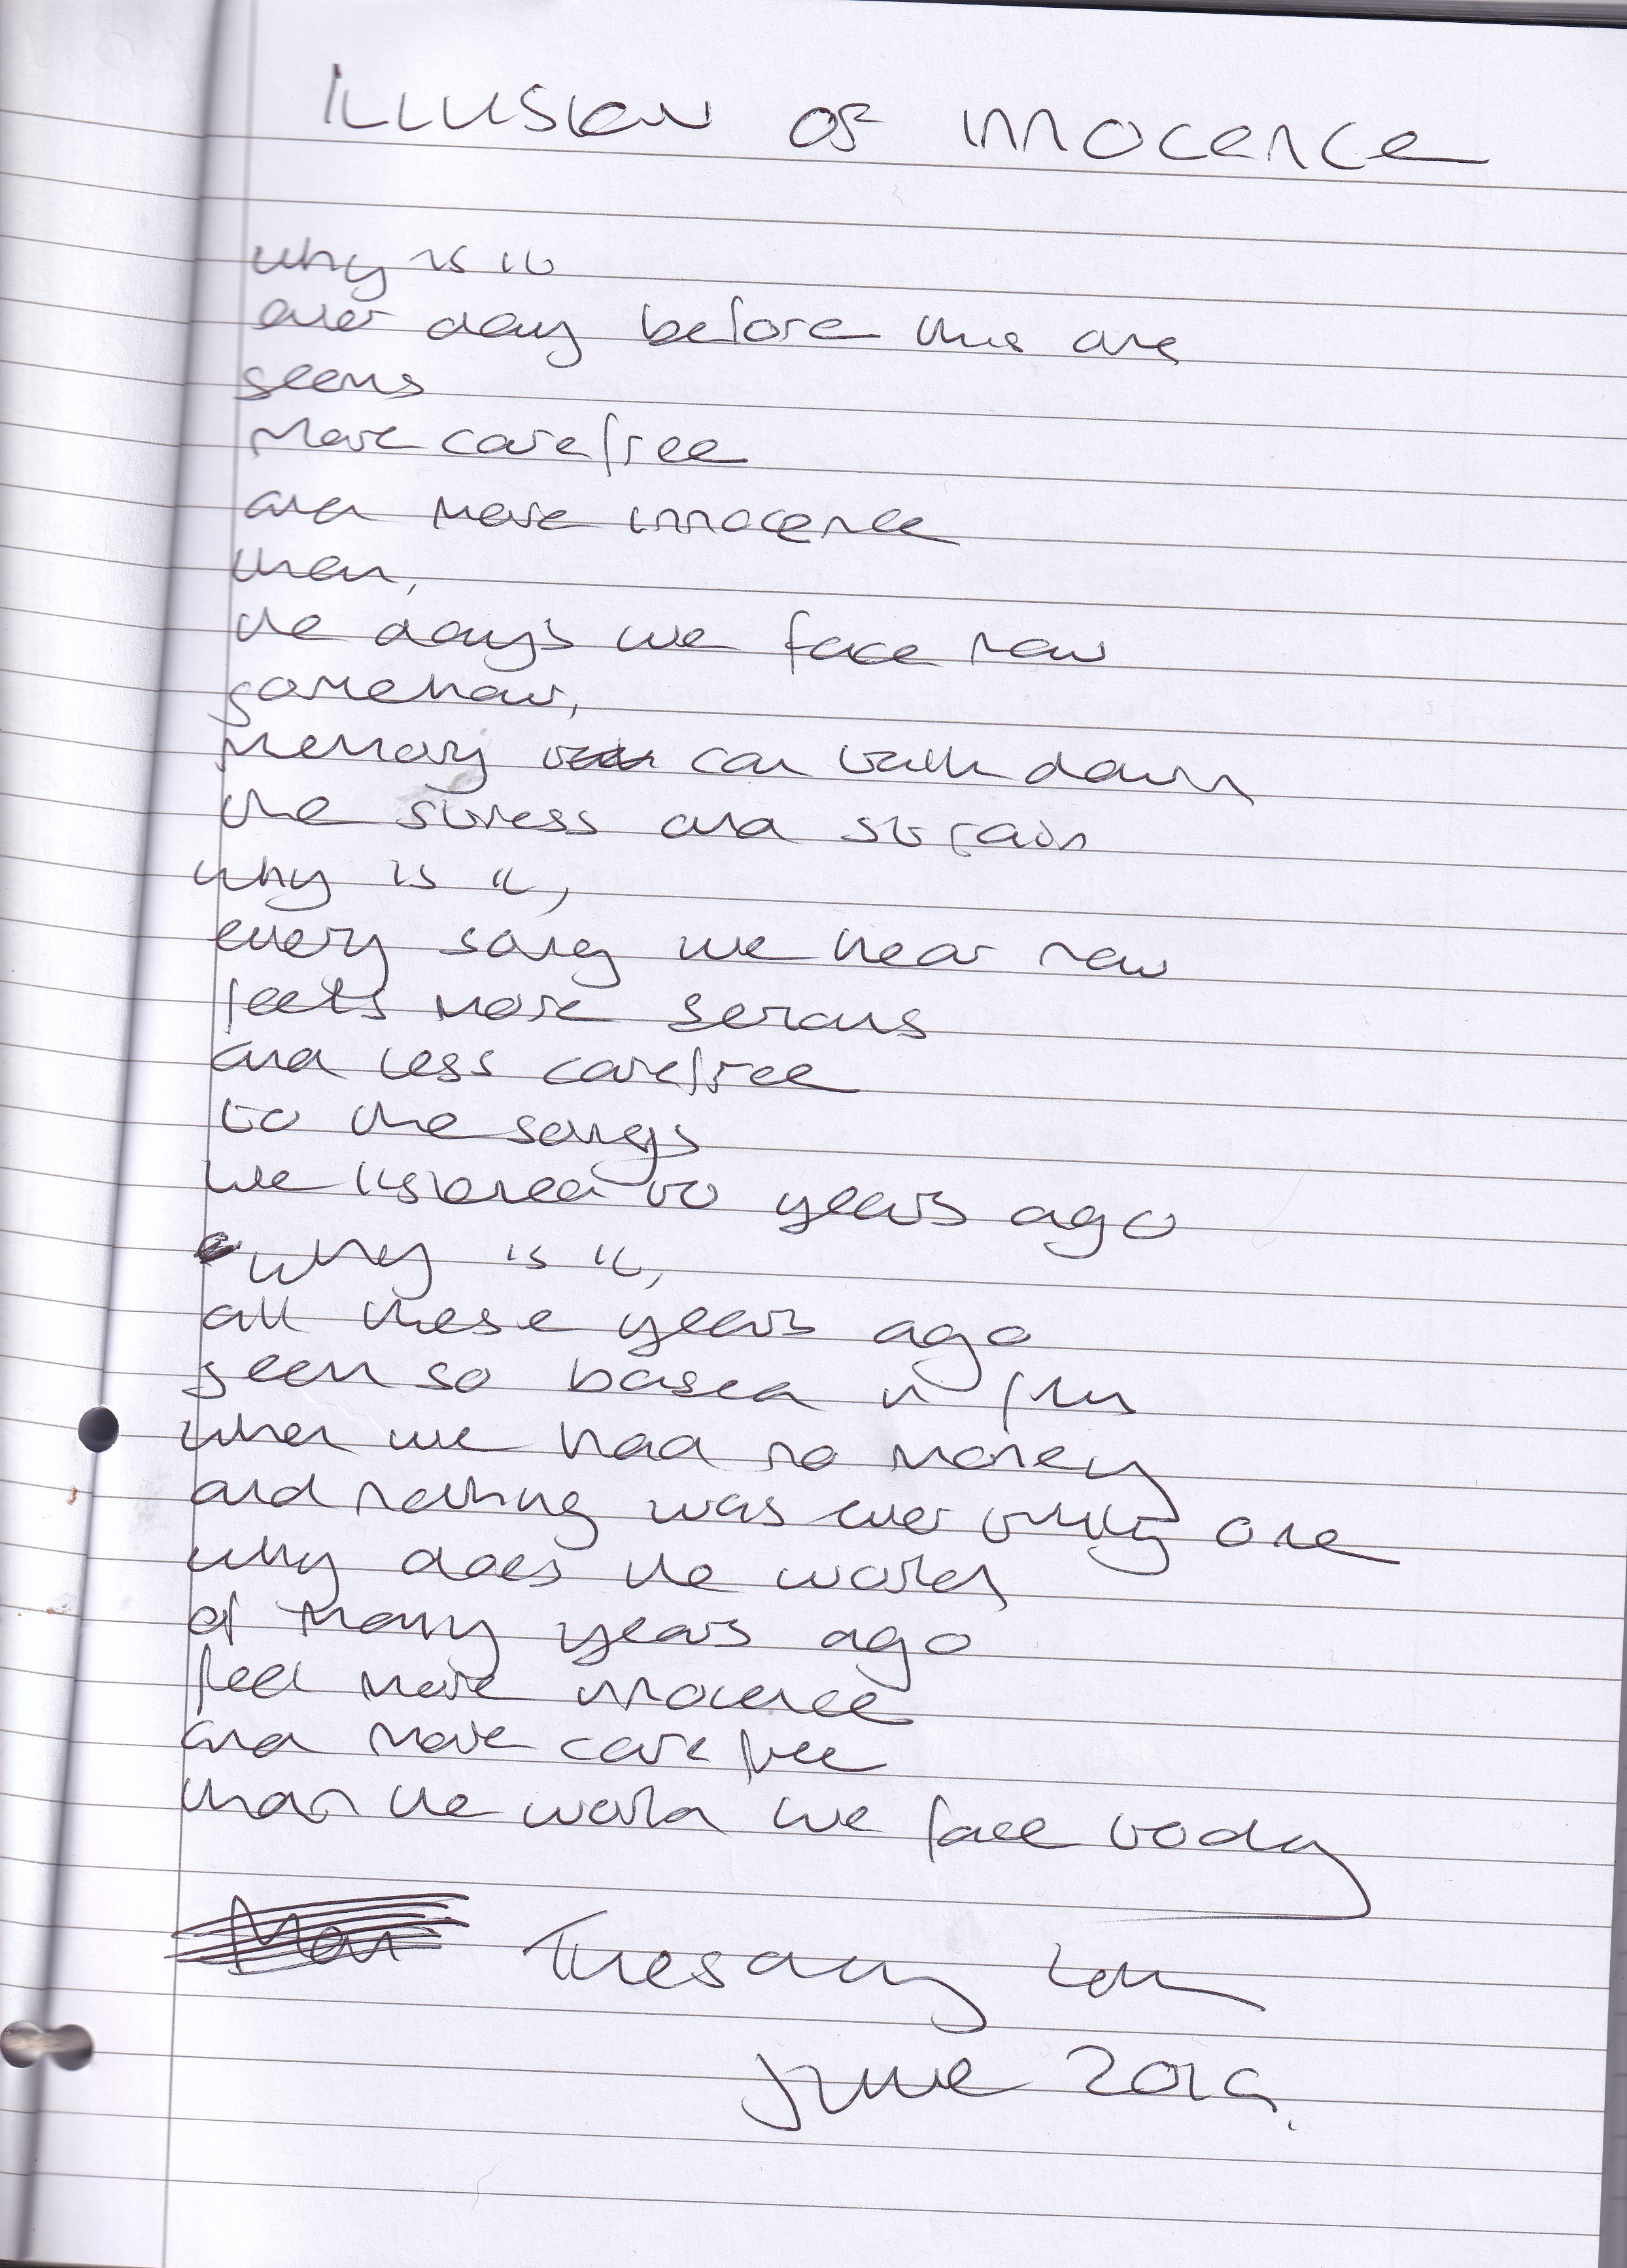 ILLUSION OF INNOCENCE
why is it
ever day before this one
seems
more carefree
and more innocence
than,
the days we face now
somehow,
memory can talk down
the stress and strain
why is it,
every song we hear now
feels more serious
and less carefree
to the songs
we listened to years ago
why is it,
all these years ago
seem so based in fun
when we had no money
and nothing was ever truly one
why does the world
of many years ago
feel more innocence
and more carefree
than the world we face today
Tuesday
June 2019.